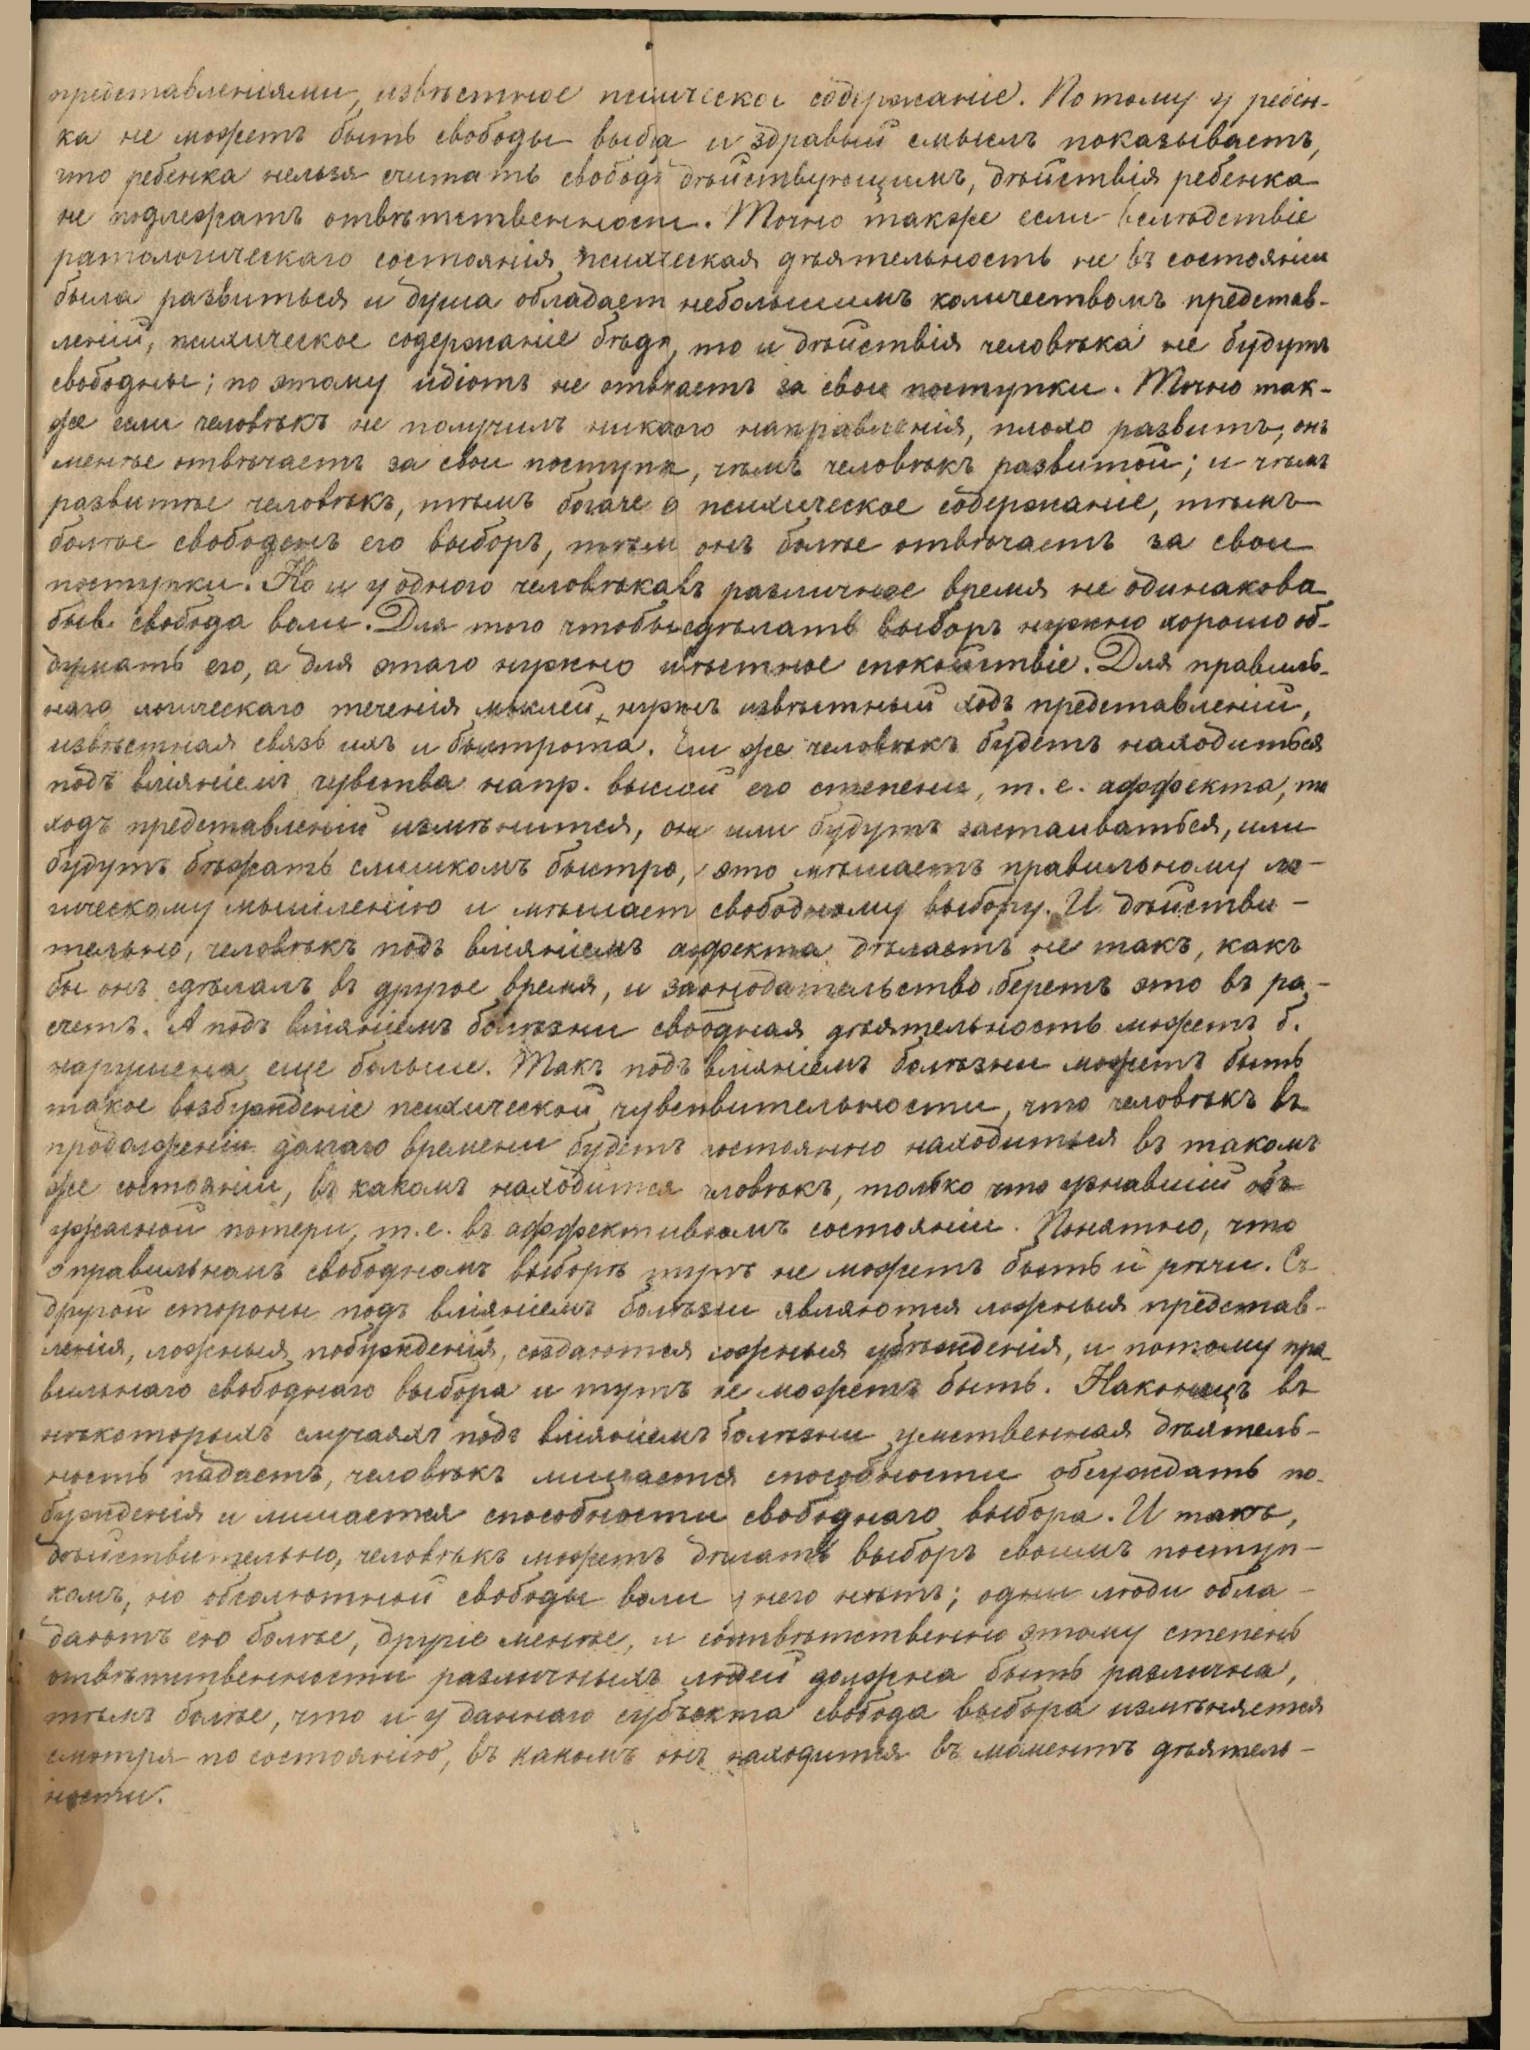 представленіями, извѣстное психическое содержаніе. Потому у ребен-
ка не можетъ быть свободы выбора и здравый смыслъ показываетъ,
что ребенка нельзя считать свободн дѣйствующимъ, дѣйствія ребенка
не подлежатъ отвѣтственности. Точно также если вслѣдствіе
патологическаго состоянія психическая дѣятельность не въ состояніи
была развиться и душа обладает небольшимъ количествомъ представ-
леній, психическое содержаніе бѣдн, то и дѣйствія человѣка не будутъ
свободны; по этому идіотъ не отвѣчаетъ за свои поступки. Точно так-
же если человѣкъ не получилъ никакого направленія, плохо развитъ, онъ
менѣе отвѣчаетъ за свои поступки, чѣмъ человѣкъ развитой; и чѣмъ
развитѣе человѣкъ, тѣмъ богаче его психическое содержаніе, тѣмъ
болѣе свободенъ его выборъ, тѣмъ онъ болѣе отвѣчаетъ за свои
поступки. Но и у одного человѣка въ различное время не одинакова
быв. свобода воли. Для того чтобы сдѣлать выборъ нужно хорошо об-
думать его, а для этаго нужно извѣстное спокойствіе. Для правиль-
наго логическаго теченія мыслей, нуженъ извѣстный ходъ представленій,
извѣстная связь ихъ и быстрота. Если же человѣкъ будетъ находиться
подъ вліяніемъ чувства напр. высшей его степени, т. е. аффекта, то
ходъ представленій измѣнится, они или будутъ застаиваться, или
будутъ бѣжать слишкомъ быстро, это мѣшаетъ правильному ло-
гическому мышленію и мѣшает свободному выбору. И дѣйстви-
тельно, человѣкъ подъ вліяніемъ аффекта дѣлаетъ не такъ, какъ
бы онъ сдѣлалъ въ другое время, и законодательство беретъ это въ ра-
счетъ. А подъ вліяніемъ болѣзни свободная дѣятельность можетъ б.
нарушена еще больше. Такъ подъ вліяніемъ болѣзни можетъ быть
такое возбужденіе психической чувствительности, что человѣкъ въ
продолженіи долгаго времени будетъ постоянно находиться въ такомъ
же состояніи, въ какомъ находится человѣкъ, только что узнавшій объ
ужасной потери, т. е. въ аффективномъ состояніи. Понятно, что
о правильномъ свободномъ выборѣ тутъ не можетъ быть и рѣчи. Съ
другой стороны подъ вліяніемъ болѣзни являются ложныя представ-
ленія, ложныя побужденія, создаются ложныя убѣжденія, и потому пра-
вильнаго свободнаго выбора и тутъ не можетъ быть. Наконецъ въ
нѣкоторыхъ случаяхъ подъ вліяніемъ болѣзни умственная дѣятель-
ность падаетъ, человѣкъ лишается способности обсуждать по-
бужденія и лишается способности свободнаго выбора. И такъ,
дѣйствительно, человѣкъ можетъ дѣлать выборъ своимъ поступ-
камъ, но абсолютной свободы воли у него нѣтъ; одни люди обла-
даютъ ею болѣе, другіе менѣе, и соотвѣтственно этому степень
отвѣтственности различныхъ людей должна быть различна,
тѣмъ болѣе, что и у даннаго субъекта свобода выбора измѣняется
смотря по состоянію, въ какомъ онъ находится въ моментъ дѣятель-
ности.